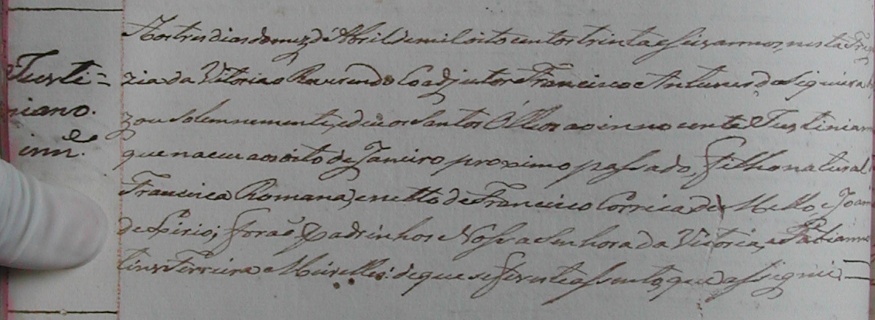 Justi=
niano.
inn.e
Aos tres dias do mez de Abril de mil oito centos trinta e seis annos, nesta Fre
zia da Vitoria o Reverendo Coadjutor Francisco Antunes de Siqueira
zou solemnemente, e deu os Santos Oleos ao innocente Justinian
que naceu aos oito de Janeiro proximo passado, filho natural
Francisca Romana, e netto de Francisco Correia de Mello, e Joan
de Spirio; forão Padrinhos Nossa Senhora da Victoria, e Fabianno
tins Ferreira Meirelles: de que se fes este assento, que assignei=